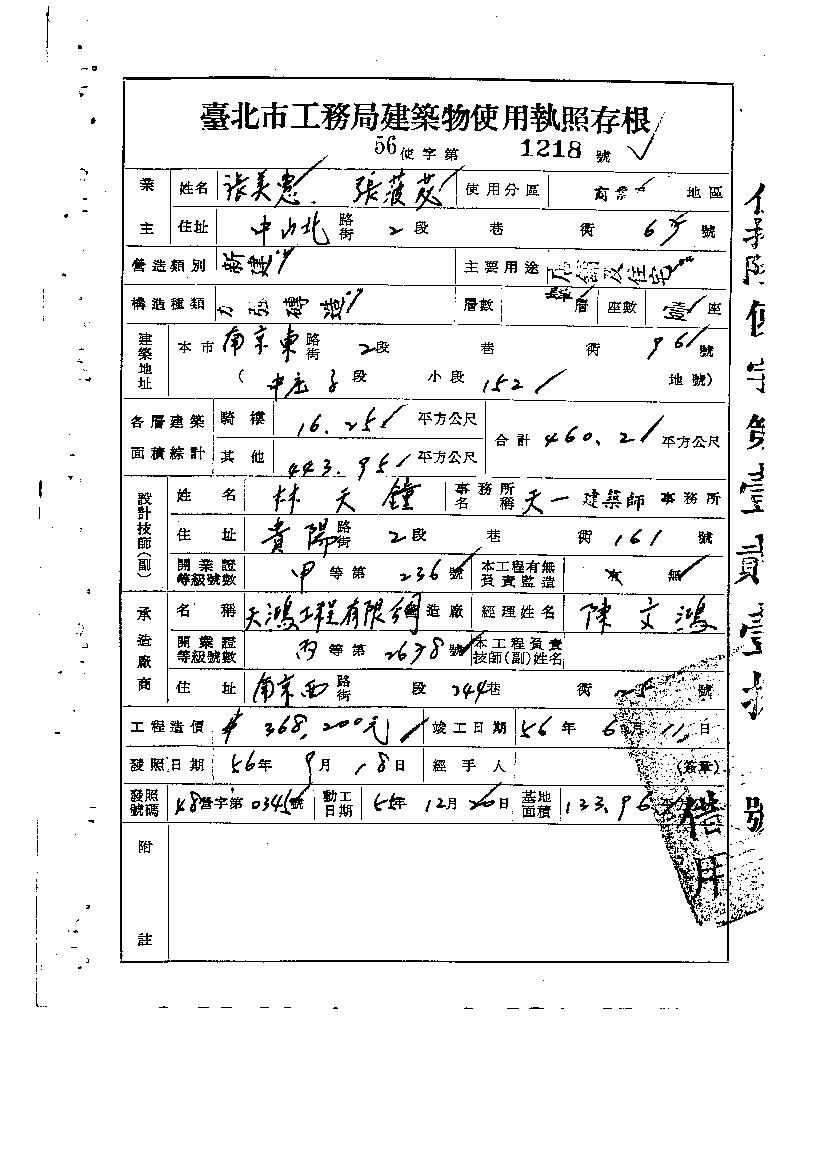 臺北市工務局建築物使用執照存根
56使字第 1218 號
業主 姓名 張美 張 使用分區 商業 地區
住址 中山北路街 2段 巷 衖 6 號
營造類別 新建 主要用途 店舖及住宅
構造種類 加強磚造 層數 層 座數 壹座
建築地址 本市 南京東路街 2段 巷 衖 96 號
( 中庄子段 小段 152 地號)
各層建築面積綜計 騎樓 16.25 平方公尺 合計 460.2 平方公尺
其他 443.95 平方公尺
設計技師(副) 姓名 林天鐘 事務所名稱 天一建築師事務所
住址 貴陽路街 2段 巷 衖 161 號
開業證等級號數 甲等第 236 號 本工程有無負責監造 有 無
承造廠商 名稱 天鴻工程有限 造廠 經理姓名 陳文鴻
開業證等級號數 丙等第 2638 號 本工程負責技師(副)姓名
住址 南京西路街 段 244巷 衖 25 號
工程造價 $ 368,200元 竣工日期 56年 6月 11日
發照日期 56年 9月 18日 經手人 (簽章)
發照號碼 48營字第 0345 號 動工日期 55年 12月 20日 基地面積 133.96
借用
附註
使字第壹貳壹 號